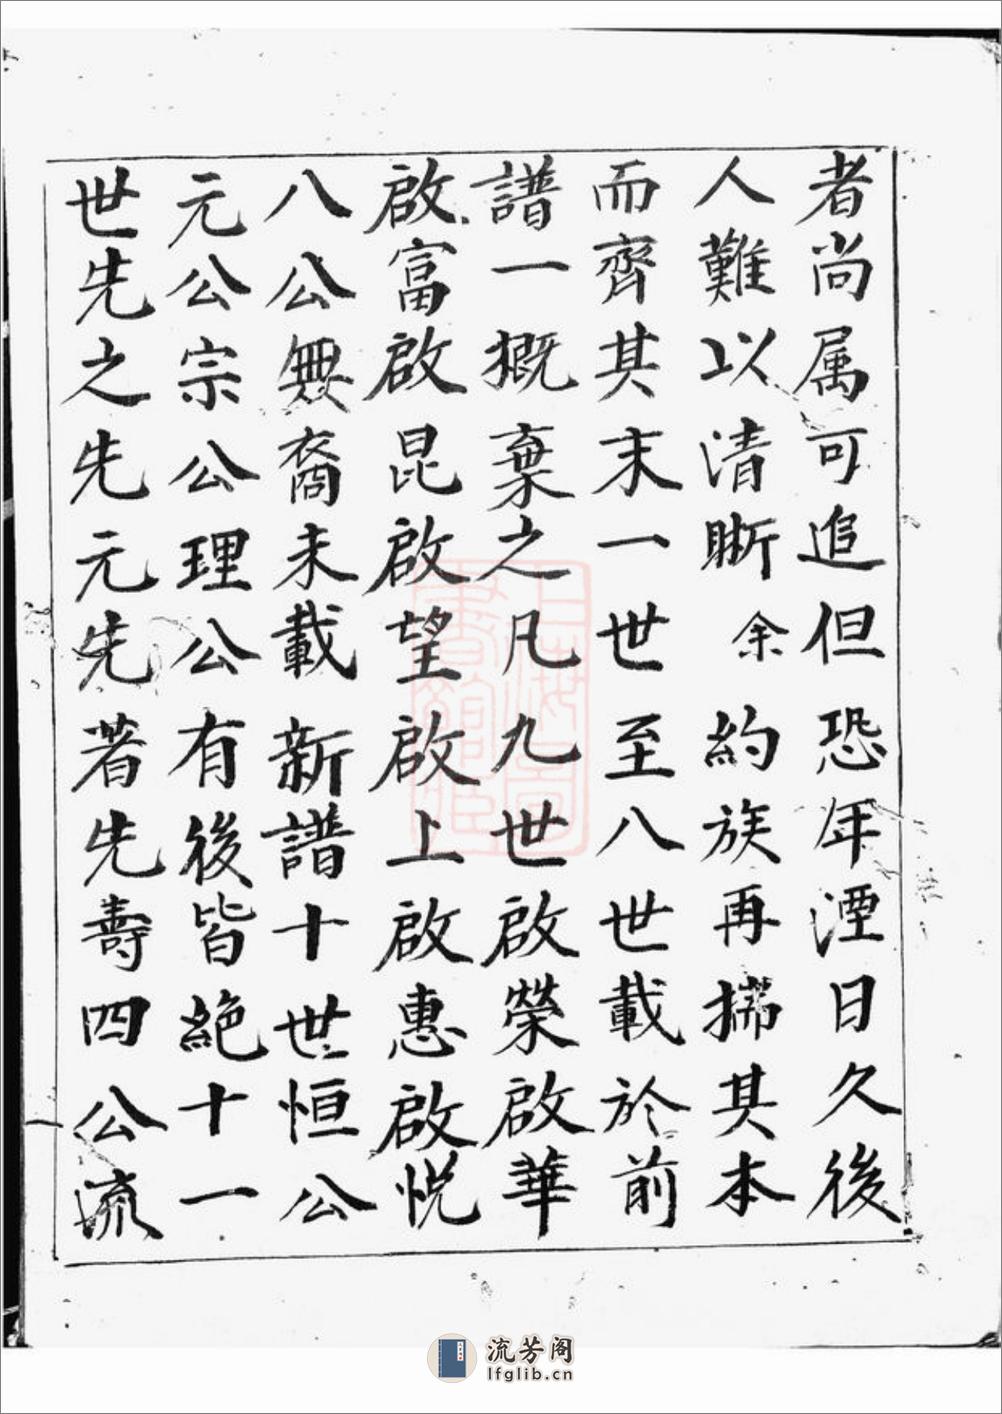 者尚属可追但恐年湮日久後
人難以清晰余約族再揣其本
而齊其末一世至八世載於前
譜一概棄之凡九世啟榮啟華
啟富啟昆啟望啟上啟惠啟悦
八公無裔未載新譜十世恒公
元公宗公理公有後皆絶十一
世先之先元先著先壽四公流
流芳阁
lfglib.cn